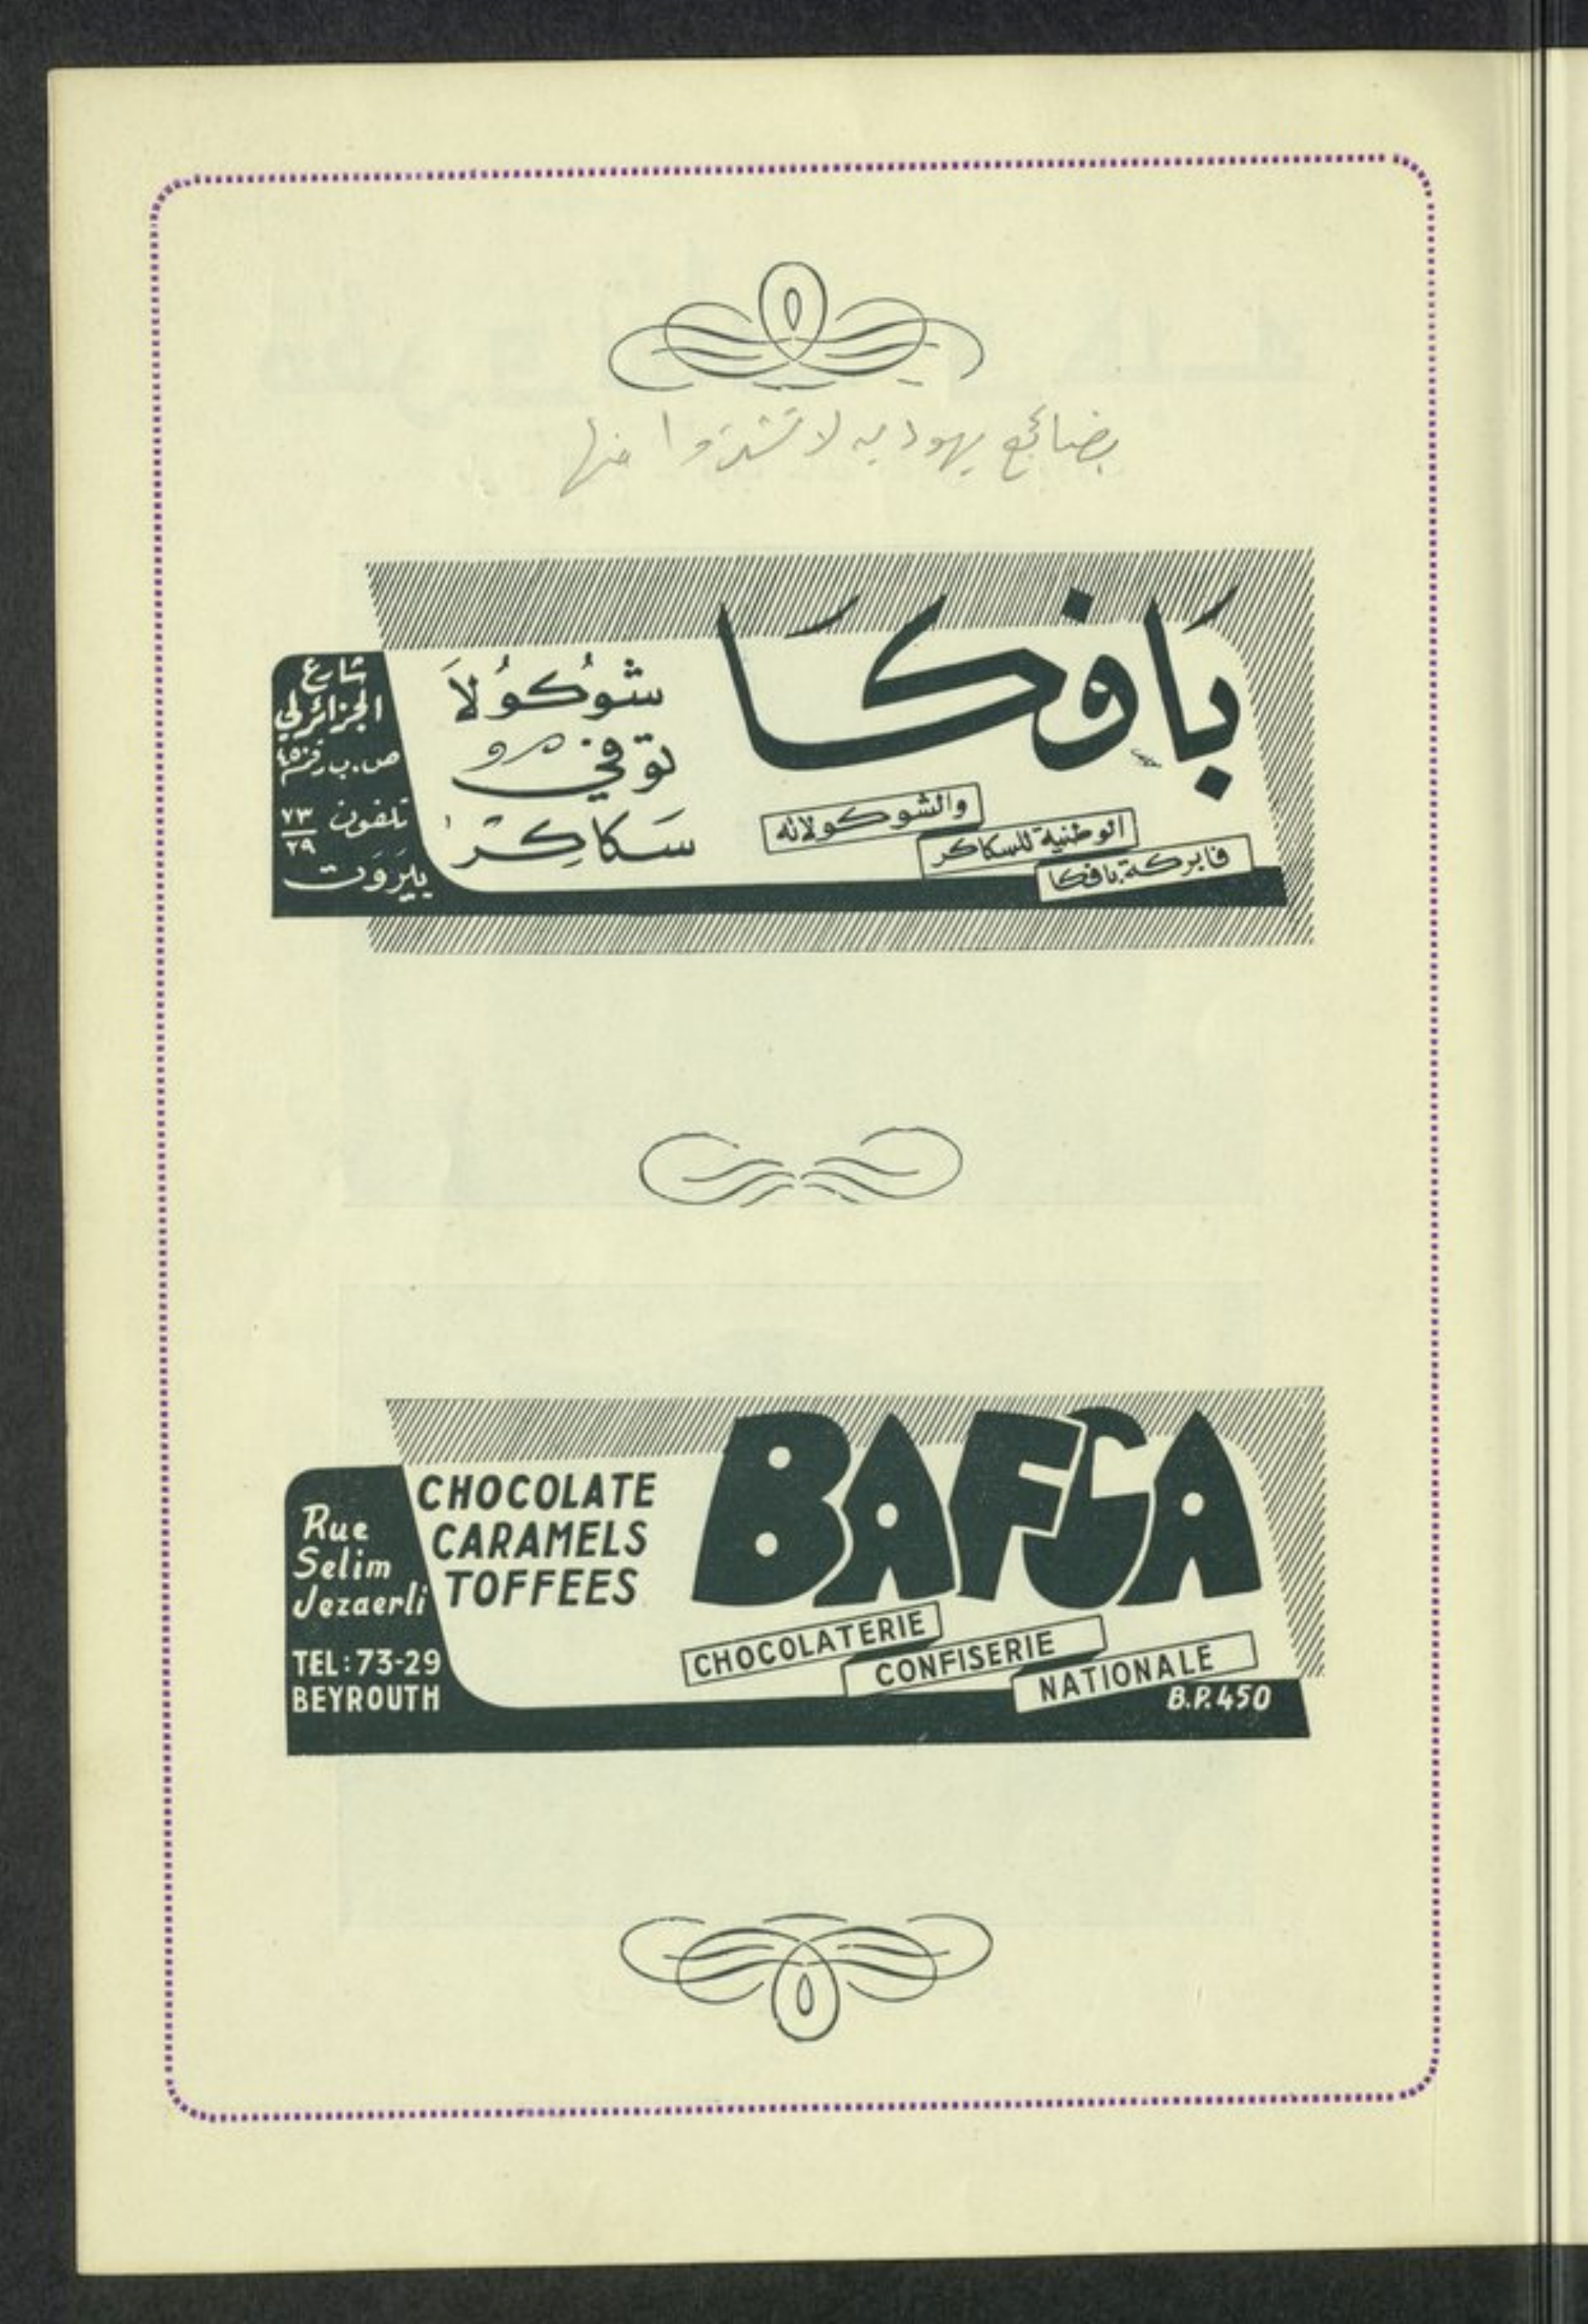 بضائع يهوديه لا تشتروا منها
بَافكَا
شوُكوُلاَ
توفي
سَكاكِر
فابركة بافكا
الوطنية للسكاكر
والشوكولاته
شارع
الجزائرلي
ص.ب رقم ٤٥٠
تلفون ٧٣/٢٩
بيَروَت
BAFCA
CHOCOLATE
CARAMELS
TOFFEES
CHOCOLATERIE
CONFISERIE
NATIONALE
B.P. 450
Rue
Selim
Jezaerli
TEL: 73-29
BEYROUTH